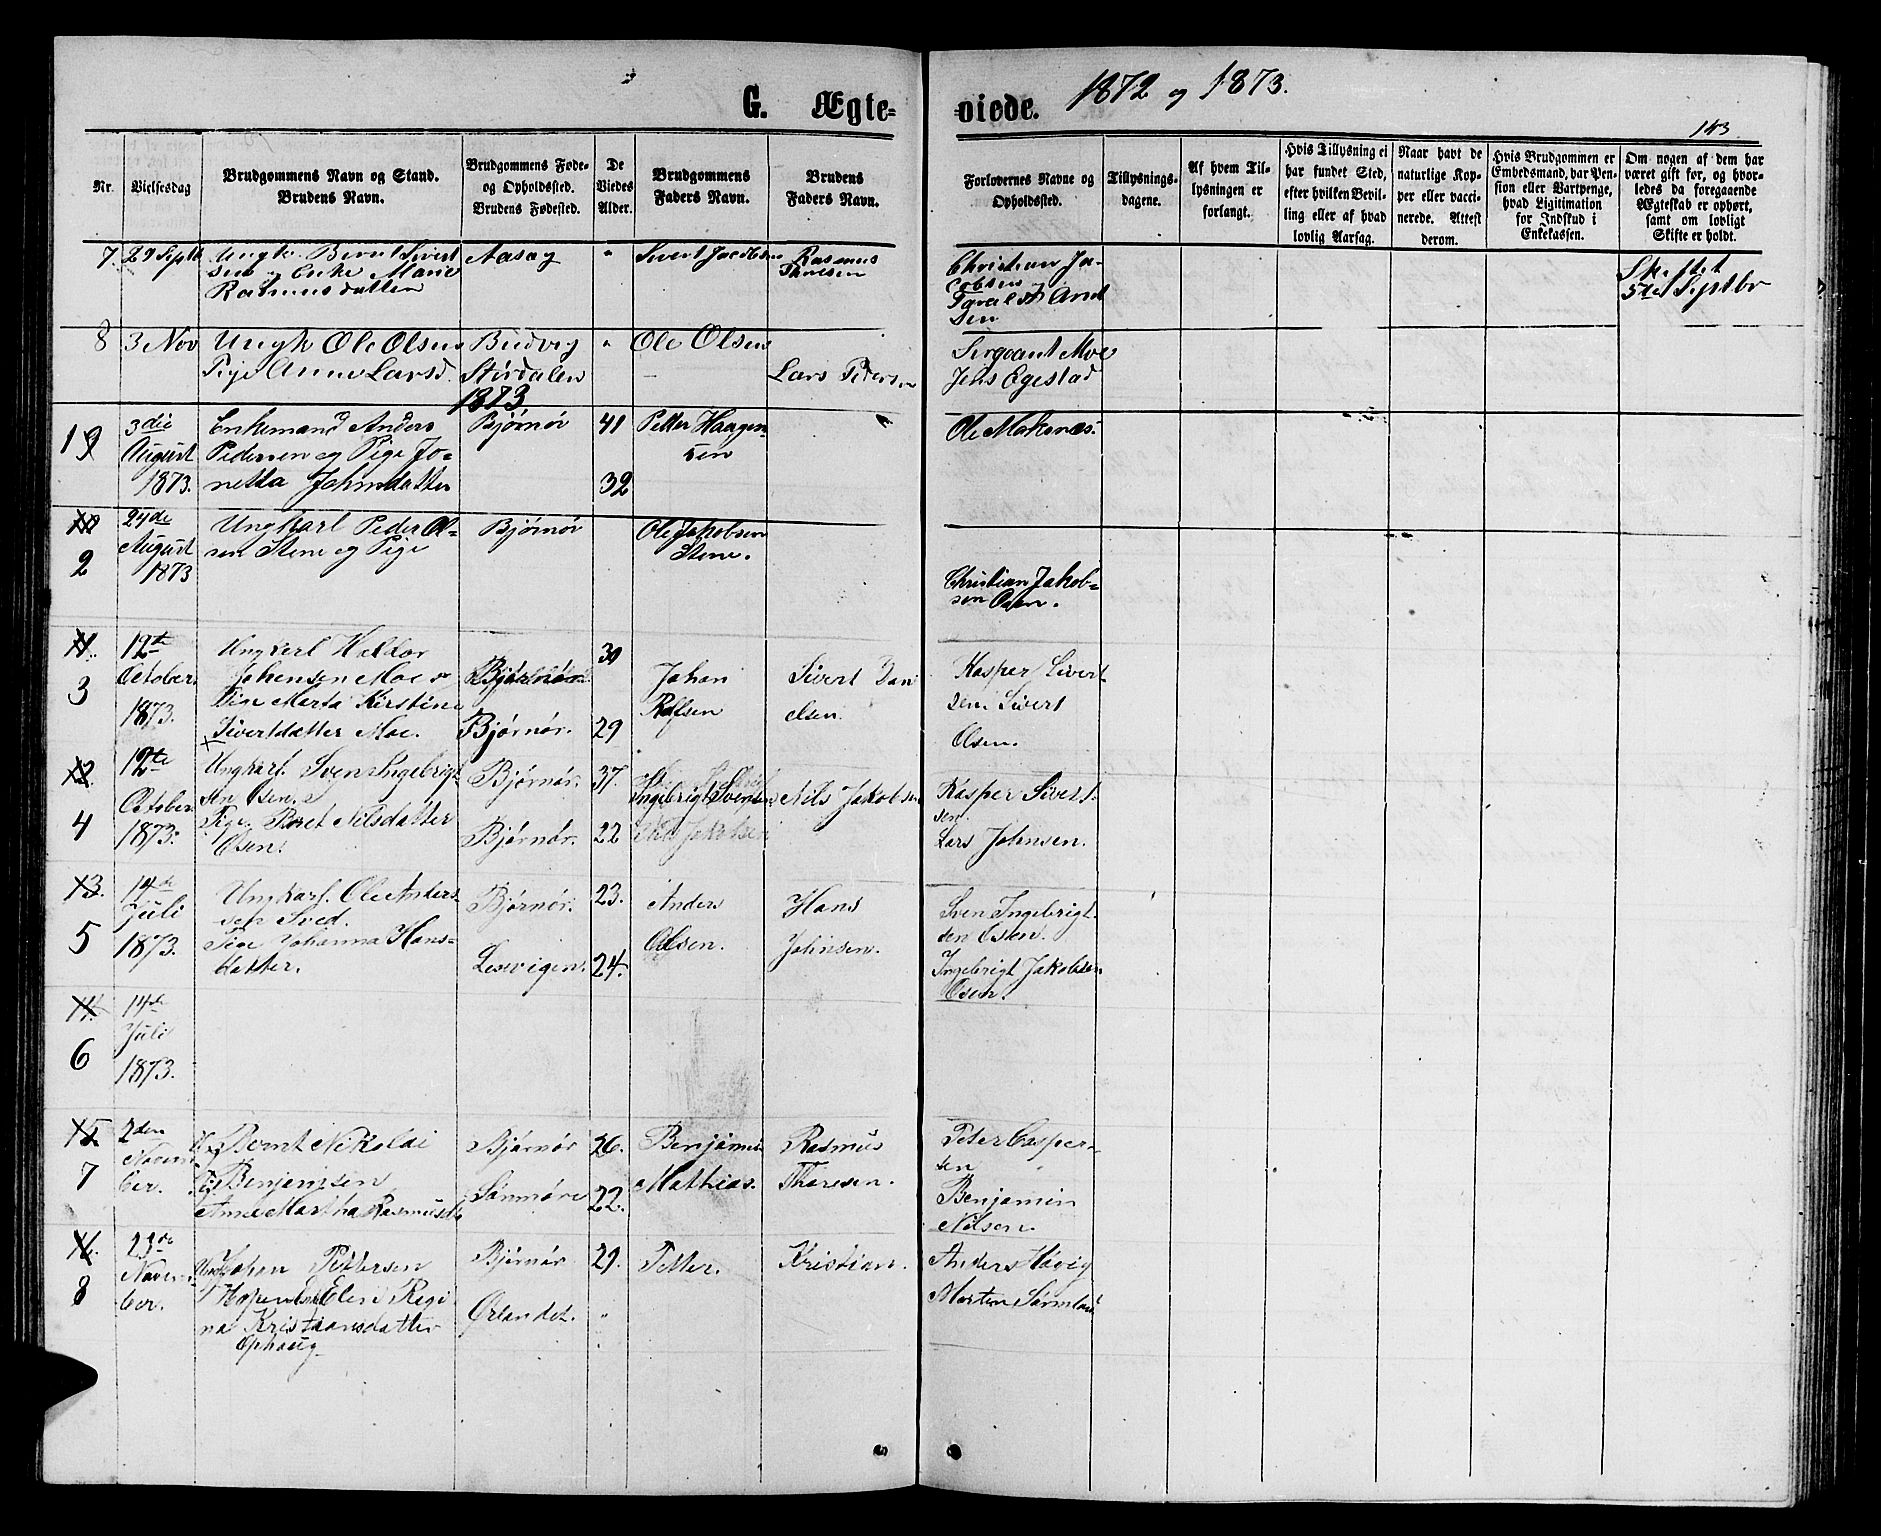 G. Ægte-
viede. 1872 og 1873.
153
Nr.
Vielsesdag
Brudgommens Navn og Stand.
Brudens Navn.
Brudgommens Føde-
og Opholdssted.
Brudens Fødested.
De
Viedes
Alder.
Brudgommens
Faders Navn.
Brudens
Faders Navn.
Forlovernes Navne og
Opholdssted.
Tillysnings-
dagene.
Af hvem Til-
lysningen er
forlangt.
Hvis Tillysning ei
har fundet Sted,
efter hvilken Bevil-
ling eller af hvad
lovlig Aarsag.
Naar havt de
naturlige Kop-
per eller vacci-
nerede. Attest
derom.
Hvis Brudgommen er
Embedsmand, har Pen-
sion eller Vartpenge,
hvad Legitimation
for Indskud i
Enkekassen.
Om nogen af dem har
været gift før, og hvor-
ledes da foregaaende
Ægteskab er ophørt,
samt om lovligt
Skifte er holdt.
7. 29 Septb
Ungk. Bernt Sivert
sen og Enke Marie
Rasmusdatter
Aasag
"
Sivert Jacobsen
Rasmus
Thoresen
Christian Ja-
cobsen
Sen
Skiftet
5te Septbr
8 3 Nov
Ungk Ole Olsen
Pige Anne Larsd.
Budvig
Stördalen
"
Ole Olsen
Lars Pedersen
Sergeant Moe
Jens Egestad
1873
1
3die
August
1873.
Enkemand Anders
Pedersen og Pige Jo-
netta Johnsdatter
Bjørnør
41
32
Petter Haagen-
sen
Ole Moksnes.
10
2
24de
August
1873
Ungkarl Peder Ol-
sen Stene og Pige
Bjørnør
Ole Jakobsen
Stene.
Christian Jakob-
sen Osen.
11.
3
12te
October
1873.
Ungkarl Haldor
Johansen Moe o
Pige Marta Kirstine
Sivertdatter Moe.
Bjørnør
Bjørnør.
30
29
Johan
Rolfsen
Sivert Dan
elsen.
Kasper Sivert-
sen. Sivert
Olsen.
12.
4
12te
October
1873.
Ungkarl. Sven Ingebrigt-
sen Osen.
Pige. Beret Nilsdatter
Osen.
Bjørnør.
Bjørnør.
37.
22
Ingebrigt Svendsen
Nils Jakobsen
Kasper Sivert-
sen.
Lars Johnsen.
13.
5
14de
Juli
1873.
Ungkarl. Ole Anders-
sen Sved.
Pige Johanna Hans-
datter.
Bjørnør.
Lesvigen.
23.
24.
Anders
Olsen.
Hans
Johnsen.
Sven Ingebrigt-
sen Osen.
Ingebrigt Jakobsen
Osen.
14.
6
14de
Juli
1873.
15.
7
2den
Novem-
ber.
Bernt Nikolai
Benjamsen
Anne Martha Rasmusd
Bjørnør
Sønmøre
26.
22.
Benjamin
Mathias.
Rasmus
Thoresen.
Peter Casper-
sen
Benjamin
Nilsen.
16.
8
23de
Novem-
ber.
Ungk Johan Pettersen
Hopen Elen Regi
na Kristiansdatter
Ophaug
Bjørnør
Ørlandet.
29.
"
Petter.
Kristian.
Anders Høvig
Morten Sørmland